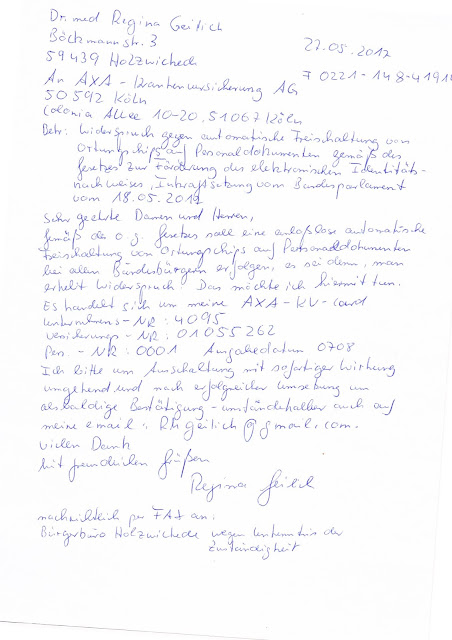 Dr. med Regina Geitich
Böckmannstr. 3
59439 Holzwickede
22.05.2017
An AXA - Krankenversicherung AG
F 0221-148-4191
50592 Köln
Colonia Allee 10-20. 51067 Köln
Betr.: Widerspruch gegen automatische Freischaltung von
Ortungschips auf Personaldokumenten gemäß des
Gesetzes zur Förderung des elektronischen Identitäts-
nachweises, Inkraftsetzung vom Bundesparlament
vom 18.05.2017
Sehr geehrte Damen und Herren,
gemäß des o.g. Gesetzes solle eine anlaßlose automatische
Freischaltung von Ortungschips auf Personaldokumenten
bei allen Bundesbürgern erfolgen, es sei denn, man
erhebt Widerspruch. Das möchte ich hiermit tun.
Es handelt sich um meine AXA-KV-Card
Unternehmens-NR: 4095
Versicherungs-NR: 01055262
Pers.-NR: 0001 Ausgabedatum 0708
Ich bitte um Ausschaltung mit sofortiger Wirkung
umgehend und nach erfolgreicher Umsetzung um
alsbaldige Bestätigung - umständehalber auch auf
meine email: RMgeilich@gmail.com.
Vielen Dank
Mit freundlichen Grüßen
Regina Geilich
nachrichtlich per FAX an:
Bürgerbüro Holzwickede wegen Unkenntnis der
Zuständigkeit